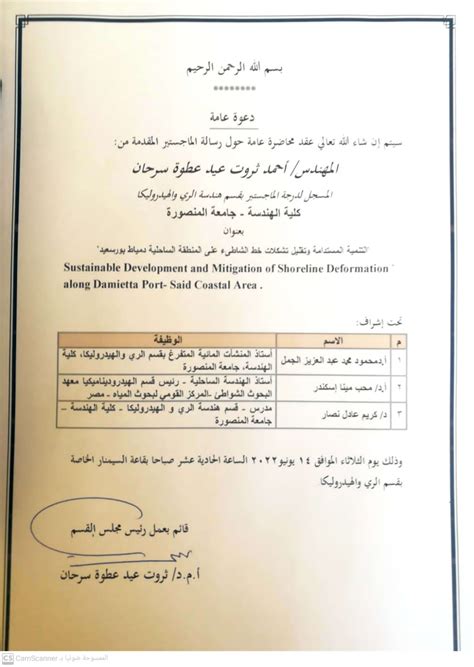 بسم الله الرحمن الرحيم
********
دعوة عامة
سيتم إن شاء الله تعالي عقد محاضرة عامة حول رسالة الماجستير المقدمة من:
المهندس/ أحمد ثروت عيد عطوة سرحان
المسجل لدرجة الماجستير بقسم هندسة الري والهيدروليكا
كلية الهندسة - جامعة المنصورة
بعنوان
"التنمية المستدامة وتقليل تشكلات خط الشاطىء على المنطقة الساحلية دمياط بورسعيد"
Sustainable Development and Mitigation of Shoreline Deformation
along Damietta Port- Said Coastal Area .
تحت إشراف:
م الاسم الوظيفة
١ أ.د/محمود محمد عبد العزيز الجمل أستاذ المنشآت المائية المتفرغ بقسم الري والهيدروليكا، كلية الهندسة، جامعة المنصورة
٢ أ.د/ محب مينا إسكندر أستاذ الهندسة الساحلية - رئيس قسم الهيدروديناميكيا معهد البحوث الشواطئ -المركز القومي لبحوث المياه - مصر
٣ د/ كريم عادل نصار مدرس - قسم هندسة الري و الهيدروليكا - كلية الهندسة – جامعة المنصورة
وذلك يوم الثلاثاء الموافق ١٤ يونيو٢٠٢٢ الساعة الحادية عشر صباحا بقاعة السيمنار الخاصة
بقسم الري والهيدروليكا.
قائم بعمل رئيس مجلس القسم
أ.م.د/ ثروت عيد عطوة سرحان
CS CamScanner الممسوحة ضوئيا بـ